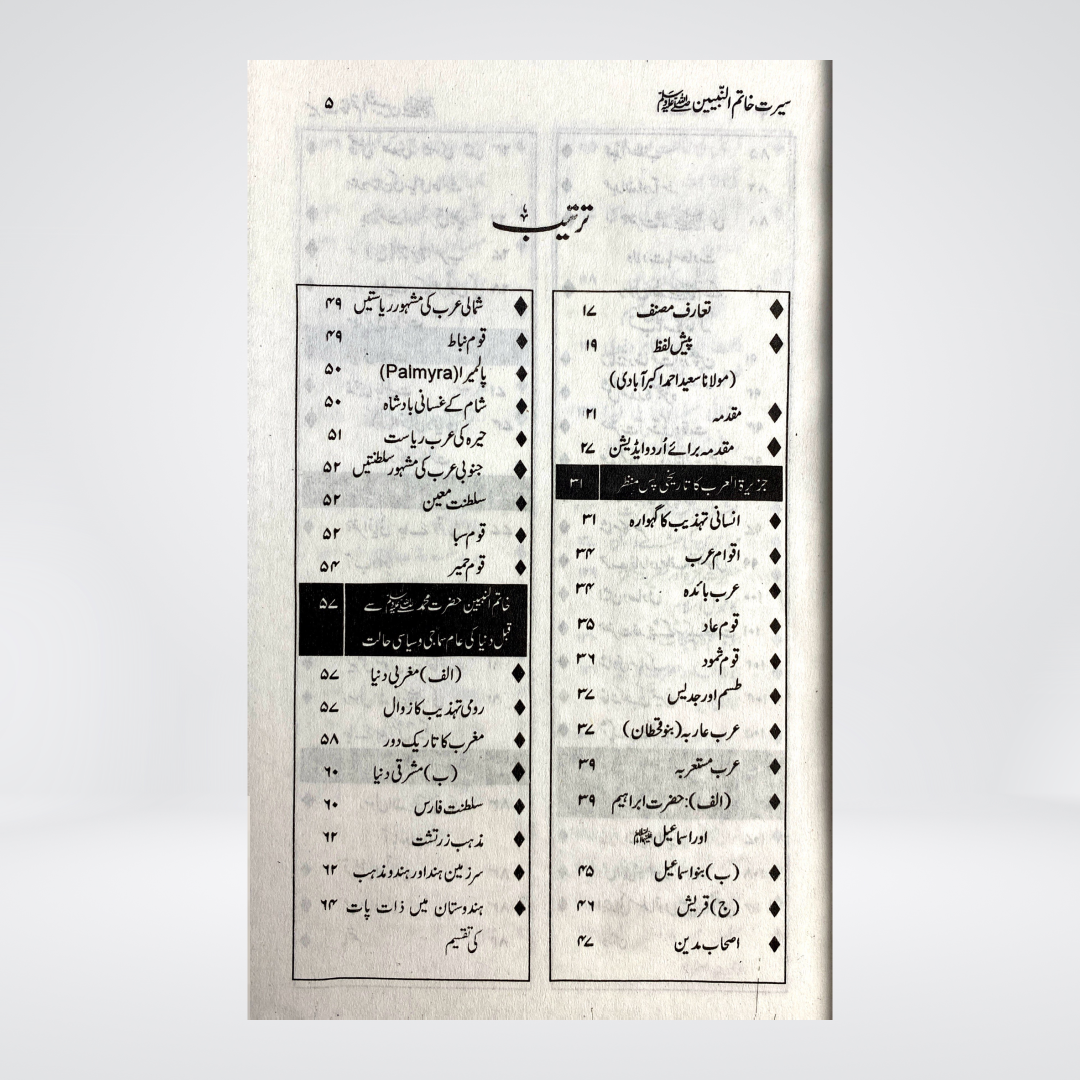 سیرت خاتم النبیین ﷺ ۵
ترتیب
تعارف مصنف ۱۷
پیش لفظ ۱۹
(مولانا سعید احمد اکبر آبادی)
مقدمہ ۲۱
مقدمہ برائے اُردو ایڈیشن ۲۷
جزیرۃ العرب کا تاریخی پس منظر ۳۱
انسانی تہذیب کا گہوارہ ۳۱
اقوام عرب ۳۴
عرب بائدہ ۳۴
قوم عاد ۳۵
قوم ثمود ۳۶
طسم اور جدیس ۳۷
عرب عاربہ (بنو قحطان) ۳۷
عرب مستعربہ ۳۹
(الف): حضرت ابراہیم ۳۹
اور اسماعیل
(ب) بنو اسماعیل ۴۵
(ج) قریش ۴۶
اصحاب مدین ۴۷
شمالی عرب کی مشہور ریاستیں ۴۹
قوم نباط ۴۹
پالمیرا (Palmyra) ۵۰
شام کے غسانی بادشاہ ۵۰
حیرہ کی عرب ریاست ۵۱
جنوبی عرب کی مشہور سلطنتیں ۵۲
سلطنت معین ۵۲
قوم سبا ۵۲
قوم حمیر ۵۴
خاتم النبیین حضرت محمد ﷺ سے ۵۷
قبل دنیا کی عام سماجی و سیاسی حالت
(الف) مغربی دنیا ۵۷
رومی تہذیب کا زوال ۵۷
مغرب کا تاریک دور ۵۸
(ب) مشرقی دنیا ۶۰
سلطنت فارس ۶۰
مذہب زرتشت ۶۲
سرزمین ہند اور ہندو مذہب ۶۲
ہندوستان میں ذات پات ۶۴
کی تقسیم